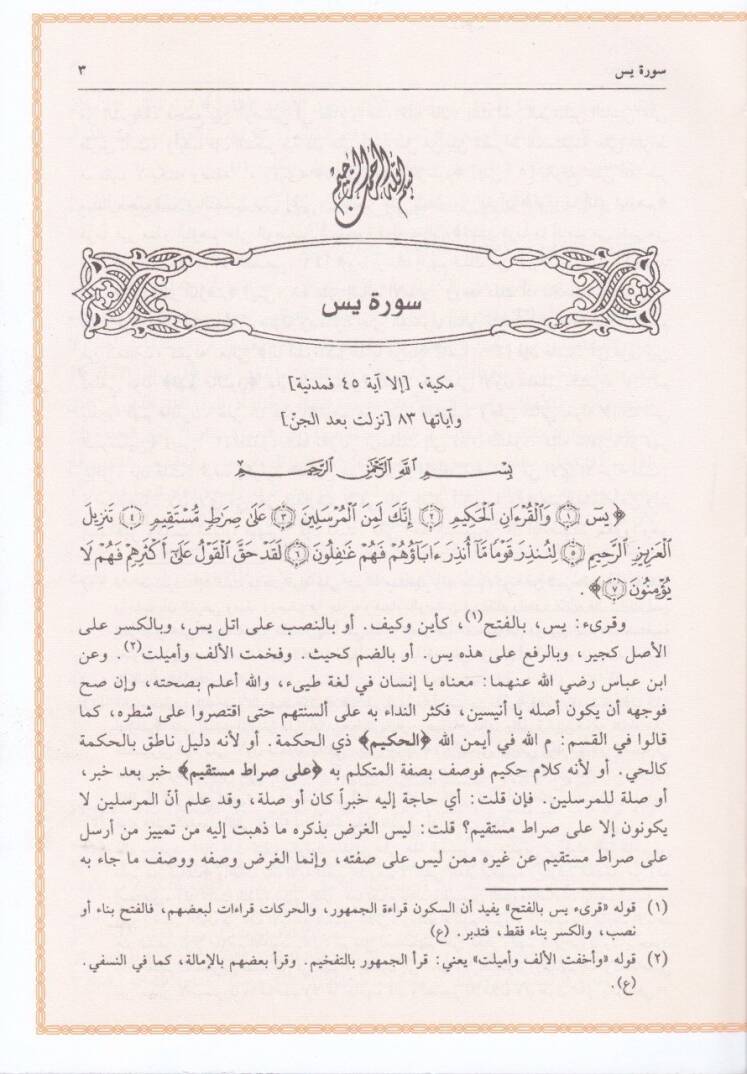 سورة يس
٣
بسم الله الرحمن الرحيم
سورة يس
مكية، [إلا آية ٤٥ فمدنية]
وآياتها ٨٣ [نزلت بعد الجنّ]
بِسْمِ اللَّهِ الرَّحْمَٰنِ الرَّحِيمِ
﴿يسٓ ۝١ وَالْقُرْءَانِ الْحَكِيمِ ۝٢ إِنَّكَ لَمِنَ الْمُرْسَلِينَ ۝٣ عَلَىٰ صِرَٰطٍ مُّسْتَقِيمٍ ۝٤ تَنزِيلَ
الْعَزِيزِ الرَّحِيمِ ۝٥ لِتُنذِرَ قَوْمًا مَّآ أُنذِرَ ءَابَآؤُهُمْ فَهُمْ غَٰفِلُونَ ۝٦ لَقَدْ حَقَّ الْقَوْلُ عَلَىٰٓ أَكْثَرِهِمْ فَهُمْ لَا
يُؤْمِنُونَ ۝٧﴾.
وقرىء: يس، بالفتح(١)، كأين وكيف. أو بالنصب على اتل يس، وبالكسر على
الأصل كجير، وبالرفع على هذه يس. أو بالضم كحيث. وفخمت الألف وأميلت(٢). وعن
ابن عباس رضي الله عنهما: معناه يا إنسان في لغة طيىء، والله أعلم بصحته، وإن صح
فوجهه أن يكون أصله يا أنيسين، فكثر النداء به على ألسنتهم حتى اقتصروا على شطره، كما
قالوا في القسم: م الله في أيمن الله ﴿الحكيم﴾ ذي الحكمة. أو لأنه دليل ناطق بالحكمة
كالحي. أو لأنه كلام حكيم فوصف بصفة المتكلم به ﴿على صراط مستقيم﴾ خبر بعد خبر،
أو صلة للمرسلين. فإن قلت: أي حاجة إليه خبراً كان أو صلة، وقد علم أنّ المرسلين لا
يكونون إلا على صراط مستقيم؟ قلت: ليس الغرض بذكره ما ذهبت إليه من تمييز من أرسل
على صراط مستقيم عن غيره ممن ليس على صفته، وإنما الغرض وصفه ووصف ما جاء به
(١) قوله «قرىء يس بالفتح» يفيد أن السكون قراءة الجمهور، والحركات قراءات لبعضهم، فالفتح بناء أو
نصب، والكسر بناء فقط، فتدبر. (ع)
(٢) قوله «وأخفت الألف وأميلت» يعني: قرأ الجمهور بالتفخيم. وقرأ بعضهم بالإمالة، كما في النسفي.
(ع).